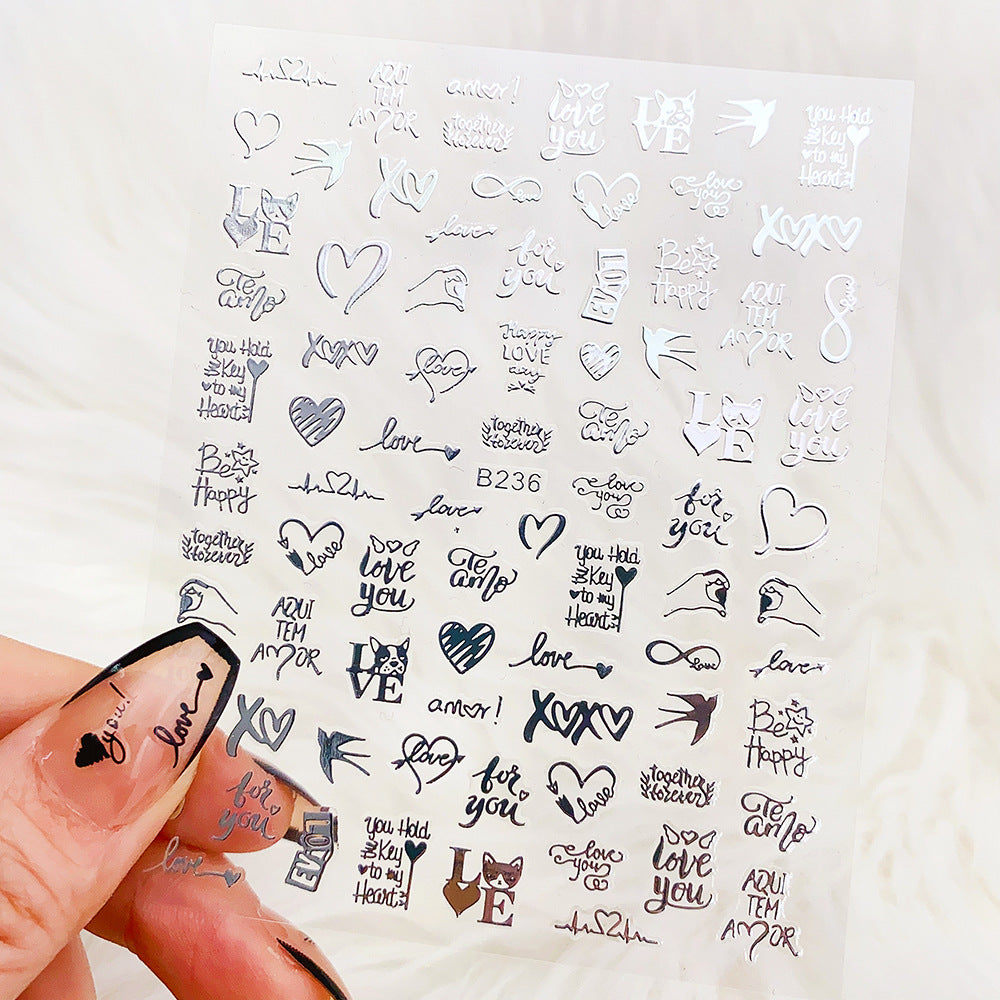 AQUI
TEM
AMOR
amor!
together
forever
love
you
LO
VE
You Hold
the Key
to my
Heart
XO
love
love
love
you
XOXO
LO
VE
love
for
you
LOVE
Be
Happy
AQUI
TEM
AMOR
love
Te
amo
You Hold
the Key
to my
Heart
XOXO
love
Happy
LOVE
day
Te
amo
LO
VE
love
you
love
together
forever
Be
Happy
B236
love
you
love
for
you
together
forever
love
love
you
Te
amo
You Hold
the Key
to my
Heart
AQUI
TEM
AMOR
LO
VE
love
love
love
you!
love
XO
amor!
XOXO
Be
Happy
love
for
you
love
together
forever
Te
amo
for
you
love
LOVE
You Hold
the Key
to my
Heart
LO
VE
love
you
love
you
AQUI
TEM
AMOR